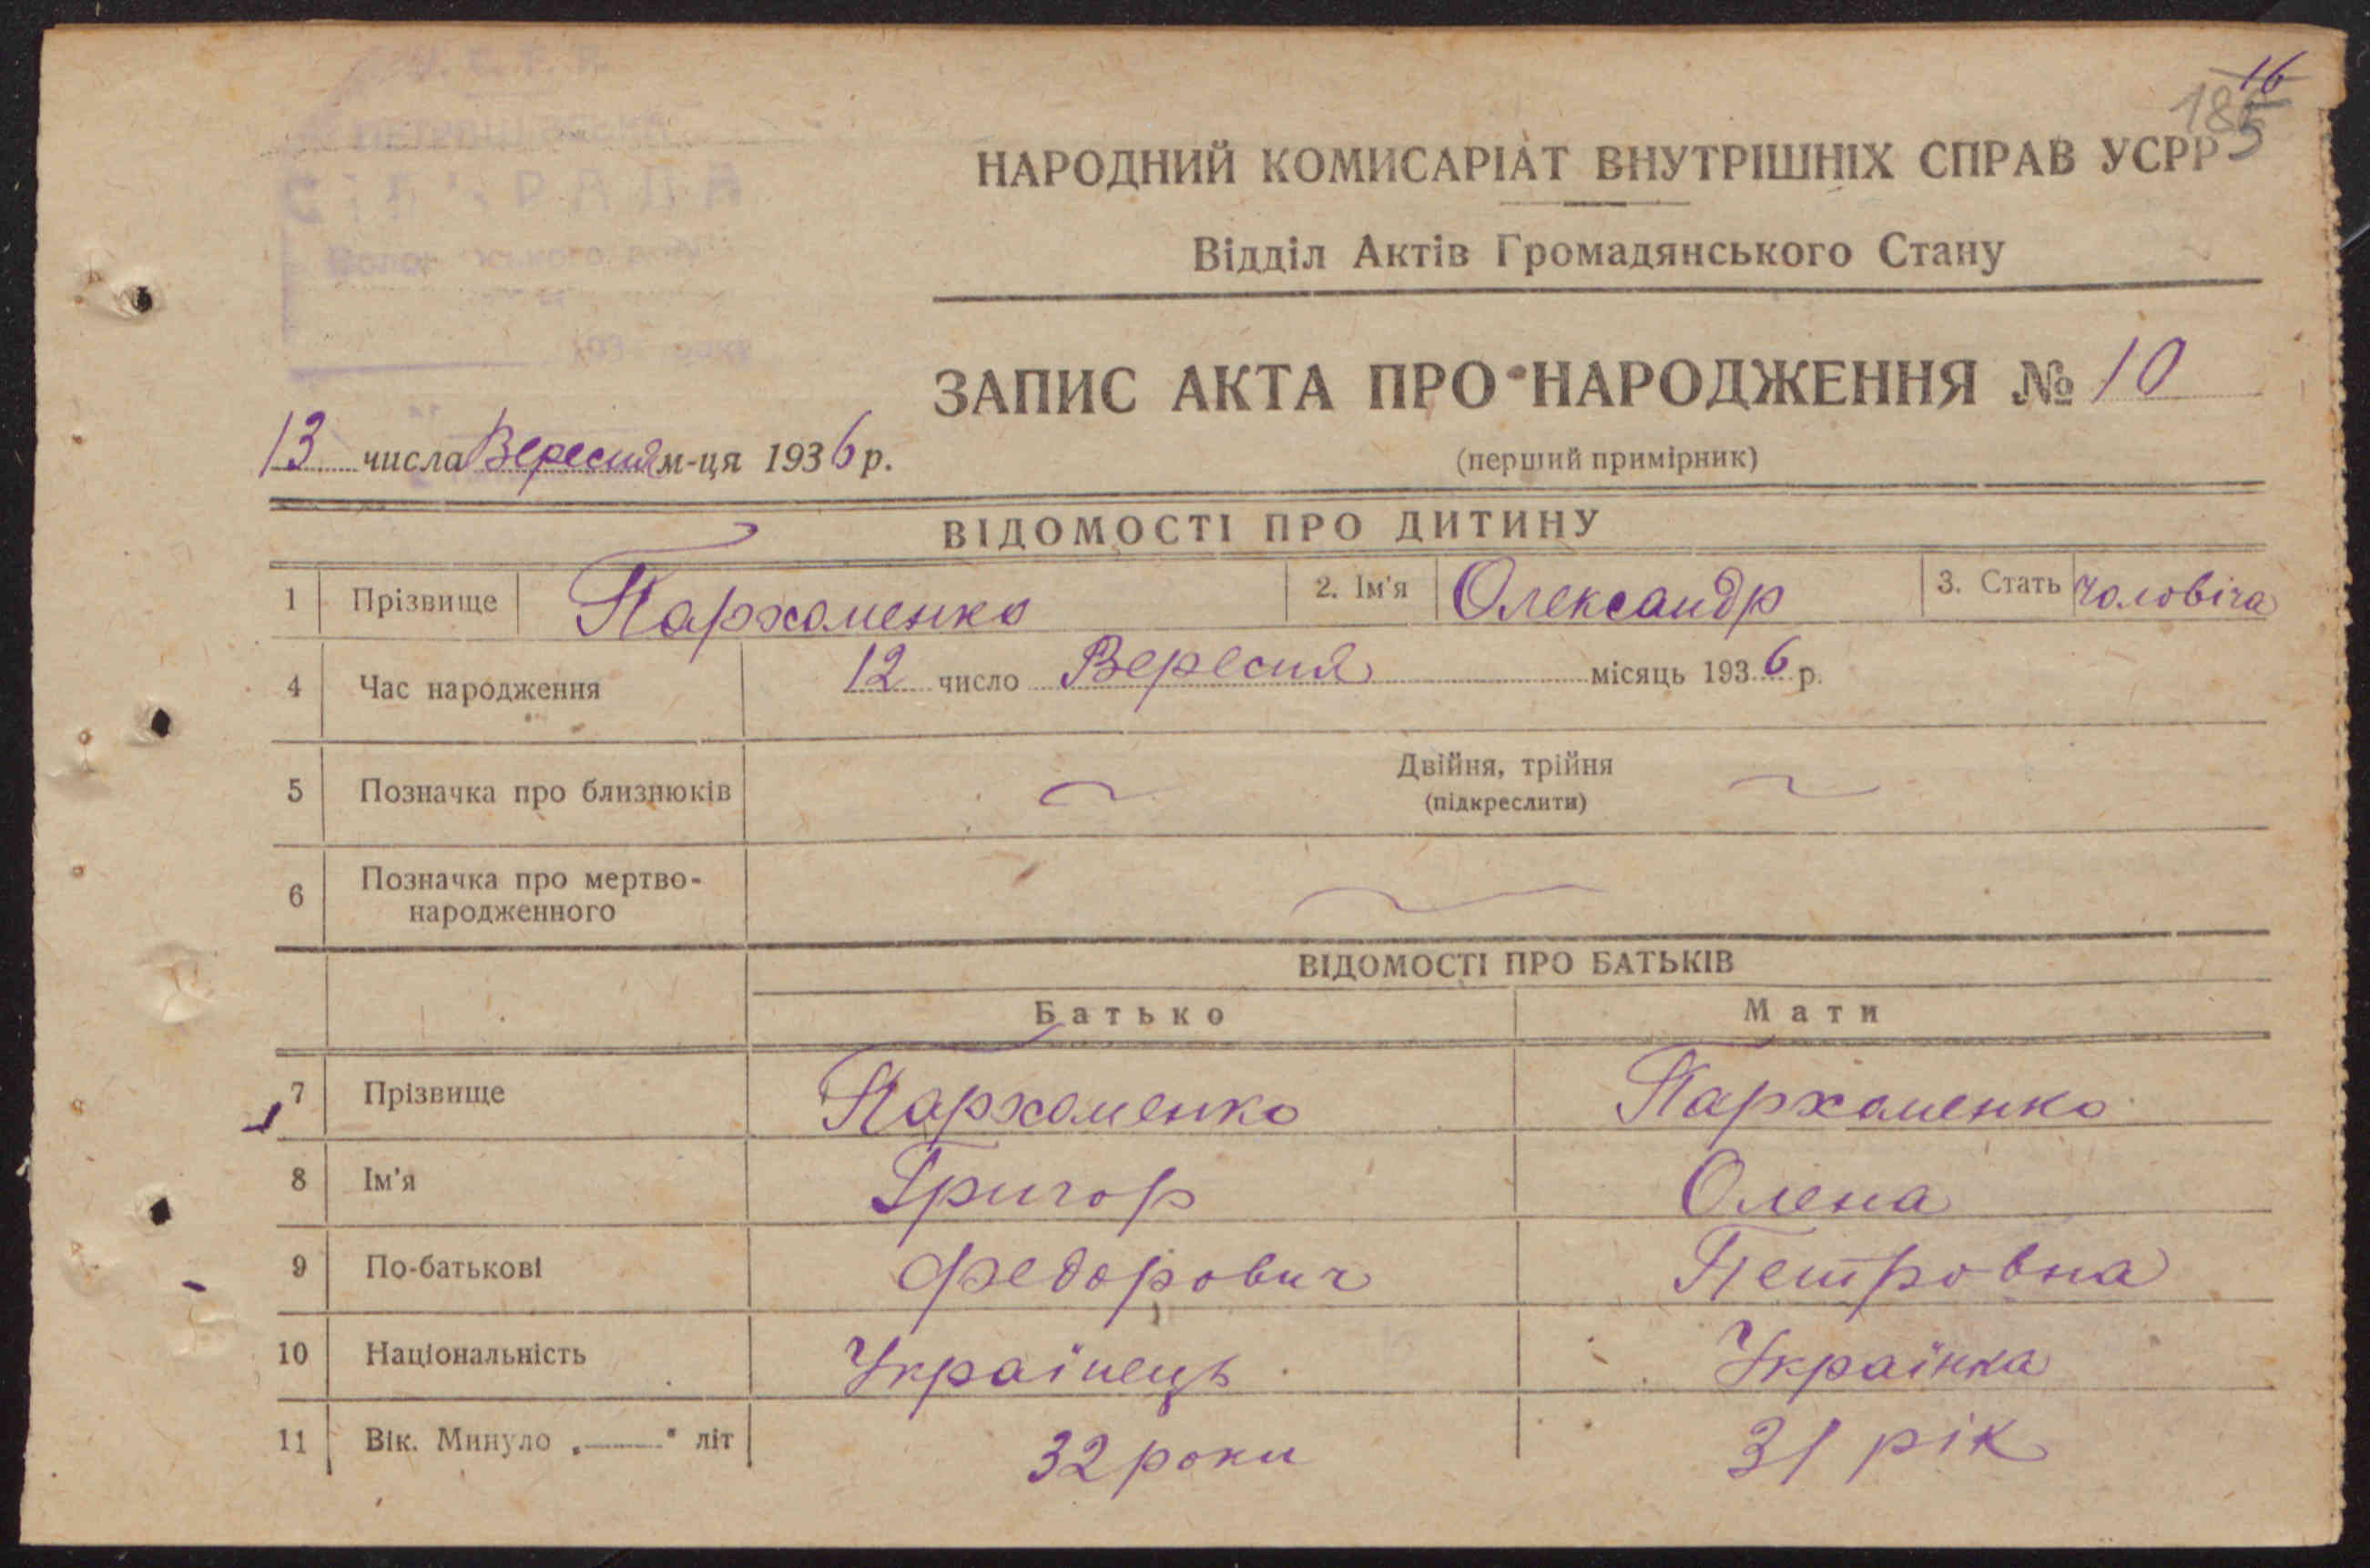 16
185
НАРОДНИЙ КОМИСАРІАТ ВНУТРІШНІХ СПРАВ УСРР
Відділ Актів Громадянського Стану
СІЛЬРАДА
ЗАПИС АКТА ПРО НАРОДЖЕННЯ № 10
(перший примірник)
13 числа Вересня м-ця 1936 р.
ВІДОМОСТІ ПРО ДИТИНУ
1 Прізвище Пархоменко 2. Ім'я Олександр 3. Стать чоловіча
4 Час народження 12 число Вересня місяць 1936 р.
5 Позначка про близнюків Двійня, трійня
(підкреслити)
6 Позначка про мертво-
народженного
ВІДОМОСТІ ПРО БАТЬКІВ
Батько Мати
7 Прізвище Пархоменко Пархоменко
8 Ім'я Григор Олена
9 По-батькові Федорович Петровна
10 Національність Українець Українка
11 Вік. Минуло „——" літ 32 роки 31 рік